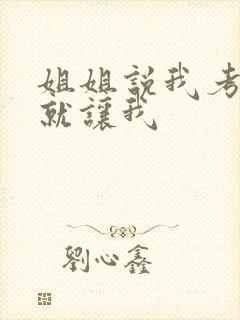 姐姐説我考
就讓我
劉心鑫